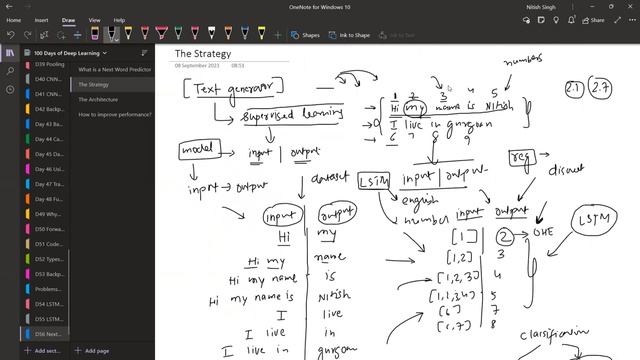 OneNote for Windows 10
Nitish Singh
File Home Insert Draw View Help
Ink to Shapes Ink to Text
100 Days of Deep Learning
D39 Pooling
D40 CNN...
D41 CNN...
D42 Backp...
D43 Backp...
Day 44 Ca...
Day 45 Da...
Day 46 Us...
Day 47 Tra...
D48 Fun...
D49 Why...
D50 Forwa...
D51 Code...
D52 Types...
D53 Backp...
Problems...
D54 LSTM...
D55 LSTM...
D56 Next...
Add sect...
What is a Next Word Predictor
The Strategy
The Architecture
How to improve performance?
Add page
The Strategy
09 September 2023 08:53
[Text generator]
supervised learning
model
input | output
input → output
dataset
input output
Hi my
Hi my name
Hi my name is
Hi my name is Nitish
I live
I live in
I live in gurgaon
numbers
1 2 3 4 5
Hi my name is Nitish
I live in gurgaon
6 7 8 9
LSTM
input | output
english
number
input output
[1] 2 → OHE
[1,2] 3
[1,2,3] 4
[1,2,3,4] 5
[6] 7
[6,7] 8
2.1 2.7
reg
discret
LSTM
classification